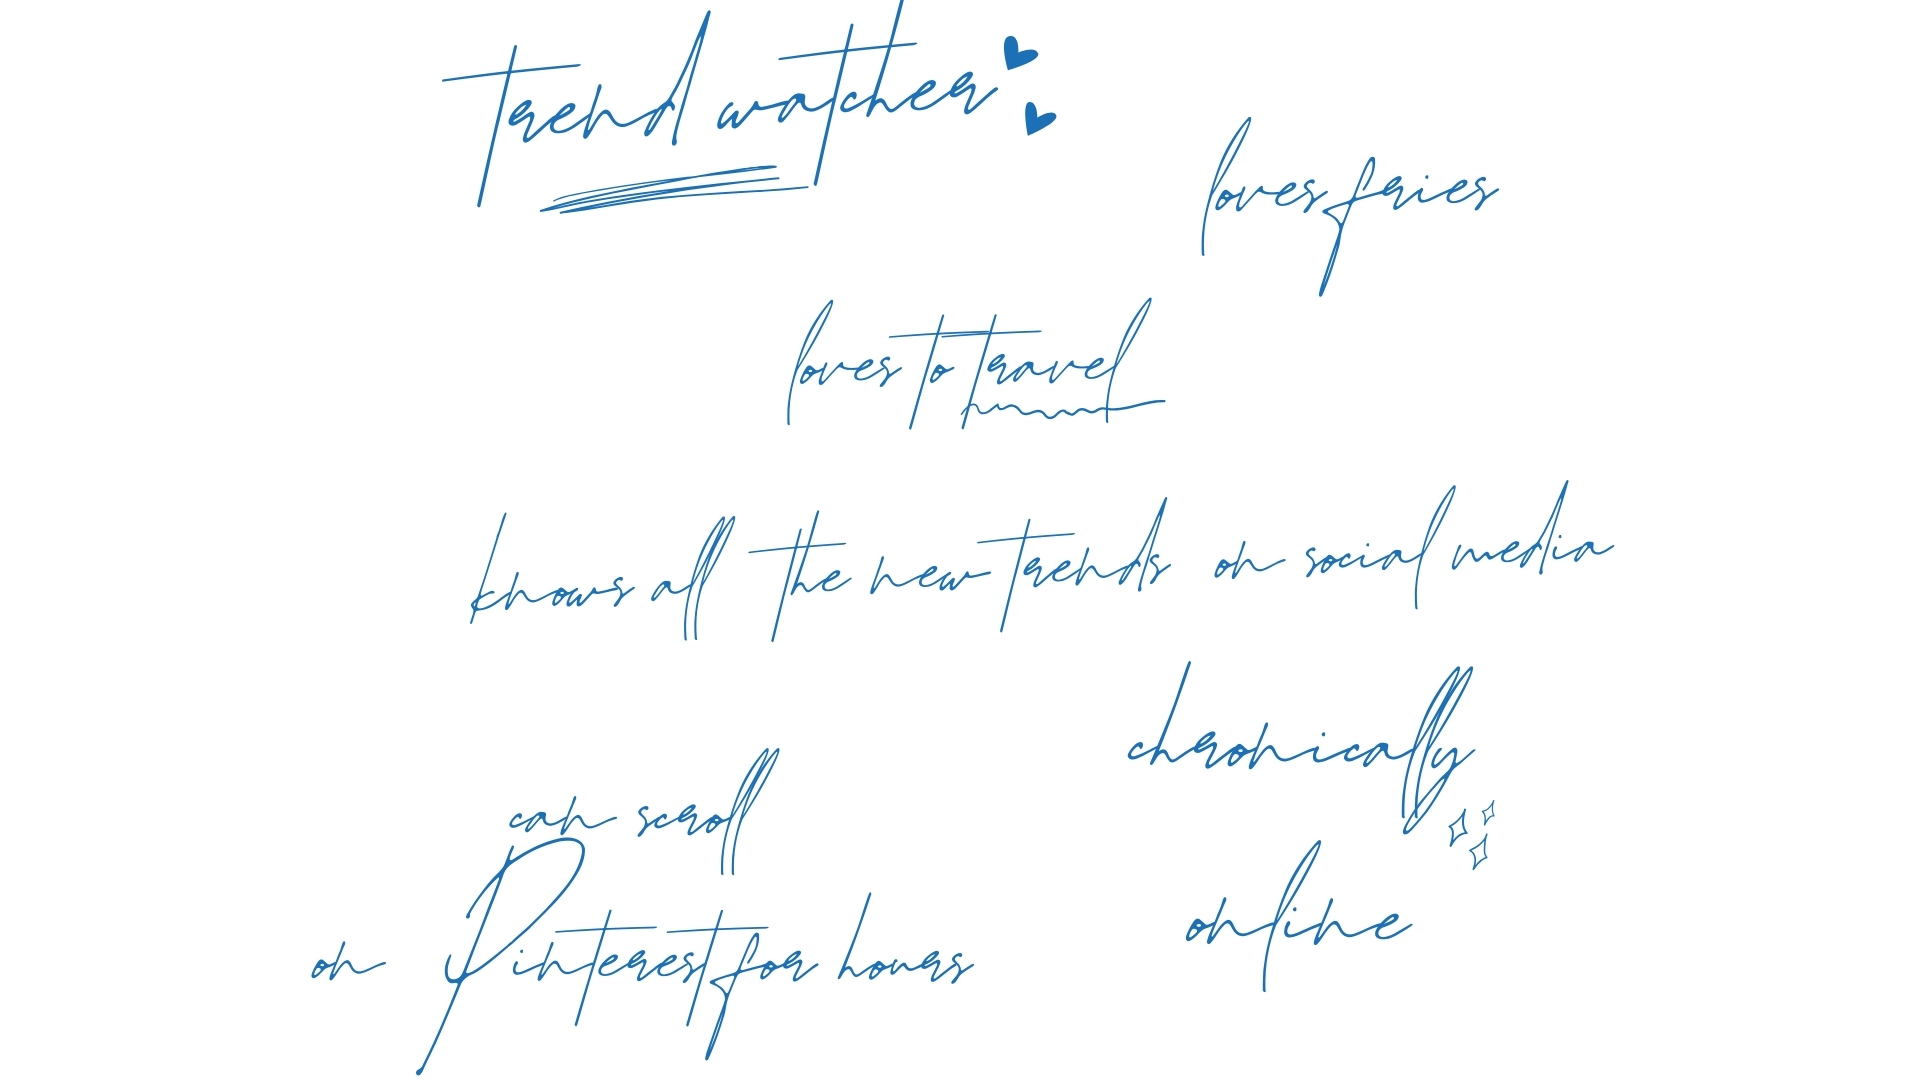 trend watcher
loves fries
loves to travel
knows all the new trends on social media
chronically
online
can scroll
on Pinterest for hours